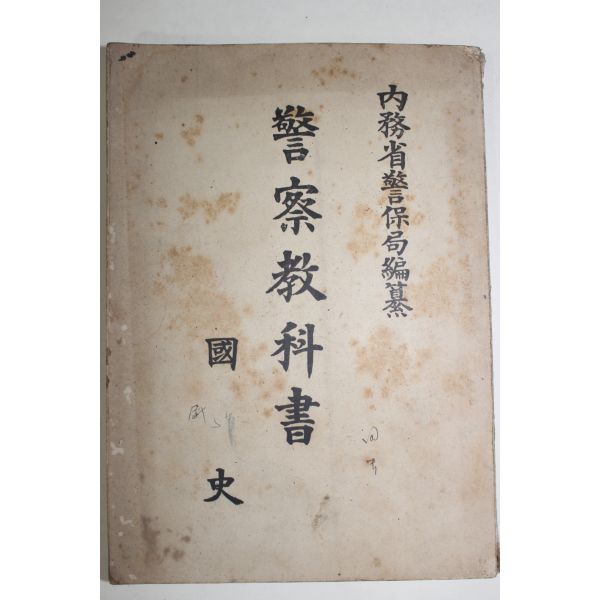 内務省警保局編纂
警察教科書
國史